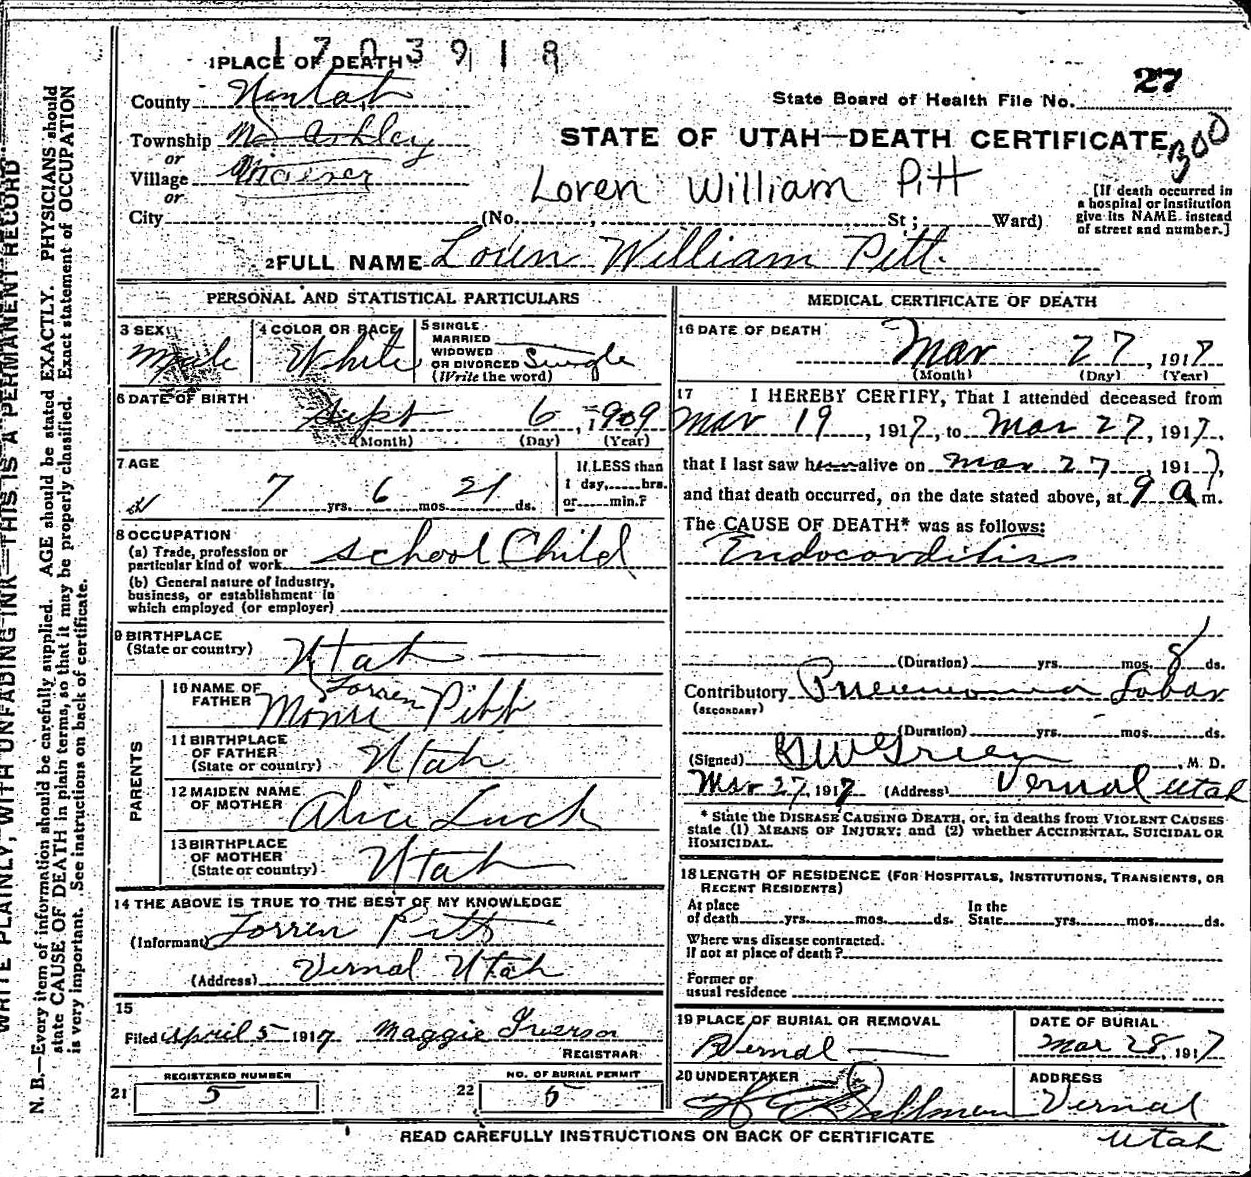 1703918
1 PLACE OF DEATH
County Uintah
State Board of Health File No. 27
Township Mt Ashley
STATE OF UTAH—DEATH CERTIFICATE
300
or
Village Maeser
or
Loren William Pitt
[If death occurred in
a hospital or institution
give its NAME instead
of street and number.]
City (No. , St; Ward)
2 FULL NAME Loren William Pitt.
PERSONAL AND STATISTICAL PARTICULARS
3 SEX Male
4 COLOR OR RACE White
5 SINGLE
MARRIED
WIDOWED
OR DIVORCED Single
(Write the word)
6 DATE OF BIRTH
Sept 6, 1909
(Month) (Day) (Year)
7 AGE
7 yrs. 6 mos. 21 ds.
If LESS than
1 day, hrs.
or min.?
8 OCCUPATION
(a) Trade, profession or
particular kind of work School Child
(b) General nature of industry,
business, or establishment in
which employed (or employer)
9 BIRTHPLACE
(State or country) Utah
PARENTS
10 NAME OF
FATHER Lorren Pitt
11 BIRTHPLACE
OF FATHER
(State or country) Utah
12 MAIDEN NAME
OF MOTHER Alice Luck
13 BIRTHPLACE
OF MOTHER
(State or country) Utah
14 THE ABOVE IS TRUE TO THE BEST OF MY KNOWLEDGE
(Informant) Lorren Pitt
(Address) Vernal Utah
15
Filed April 5 1917 Maggie Iverson
REGISTRAR
21 REGISTERED NUMBER
5
22 NO. OF BURIAL PERMIT
5
MEDICAL CERTIFICATE OF DEATH
16 DATE OF DEATH
Mar 27, 1917
(Month) (Day) (Year)
17 I HEREBY CERTIFY, That I attended deceased from
Mar 19, 1917, to Mar 27, 1917,
that I last saw h alive on Mar 27, 1917,
and that death occurred, on the date stated above, at 9 a m.
The CAUSE OF DEATH* was as follows:
Endocorditis
(Duration) yrs. mos. 8 ds.
Contributory Pneumonia Lobar
(SECONDARY)
(Duration) yrs. mos. ds.
(Signed) Green, M. D.
Mar 27, 1917 (Address) Vernal Utah
* State the DISEASE CAUSING DEATH, or, in deaths from VIOLENT CAUSES
state (1) MEANS OF INJURY; and (2) whether ACCIDENTAL, SUICIDAL OR
HOMICIDAL.
18 LENGTH OF RESIDENCE (FOR HOSPITALS, INSTITUTIONS, TRANSIENTS, OR
RECENT RESIDENTS)
At place In the
of death yrs. mos. ds. State yrs. mos. ds.
Where was disease contracted.
If not at place of death?
Former or
usual residence
19 PLACE OF BURIAL OR REMOVAL
Vernal
DATE OF BURIAL
Mar 28, 1917
20 UNDERTAKER
ADDRESS
Vernal
Utah
READ CAREFULLY INSTRUCTIONS ON BACK OF CERTIFICATE
WRITE PLAINLY, WITH UNFADING INK—THIS IS A PERMANENT RECORD
N. B.—Every item of information should be carefully supplied. AGE should be stated EXACTLY. PHYSICIANS should
state CAUSE OF DEATH in plain terms, so that it may be properly classified. Exact statement of OCCUPATION
is very important. See instructions on back of certificate.